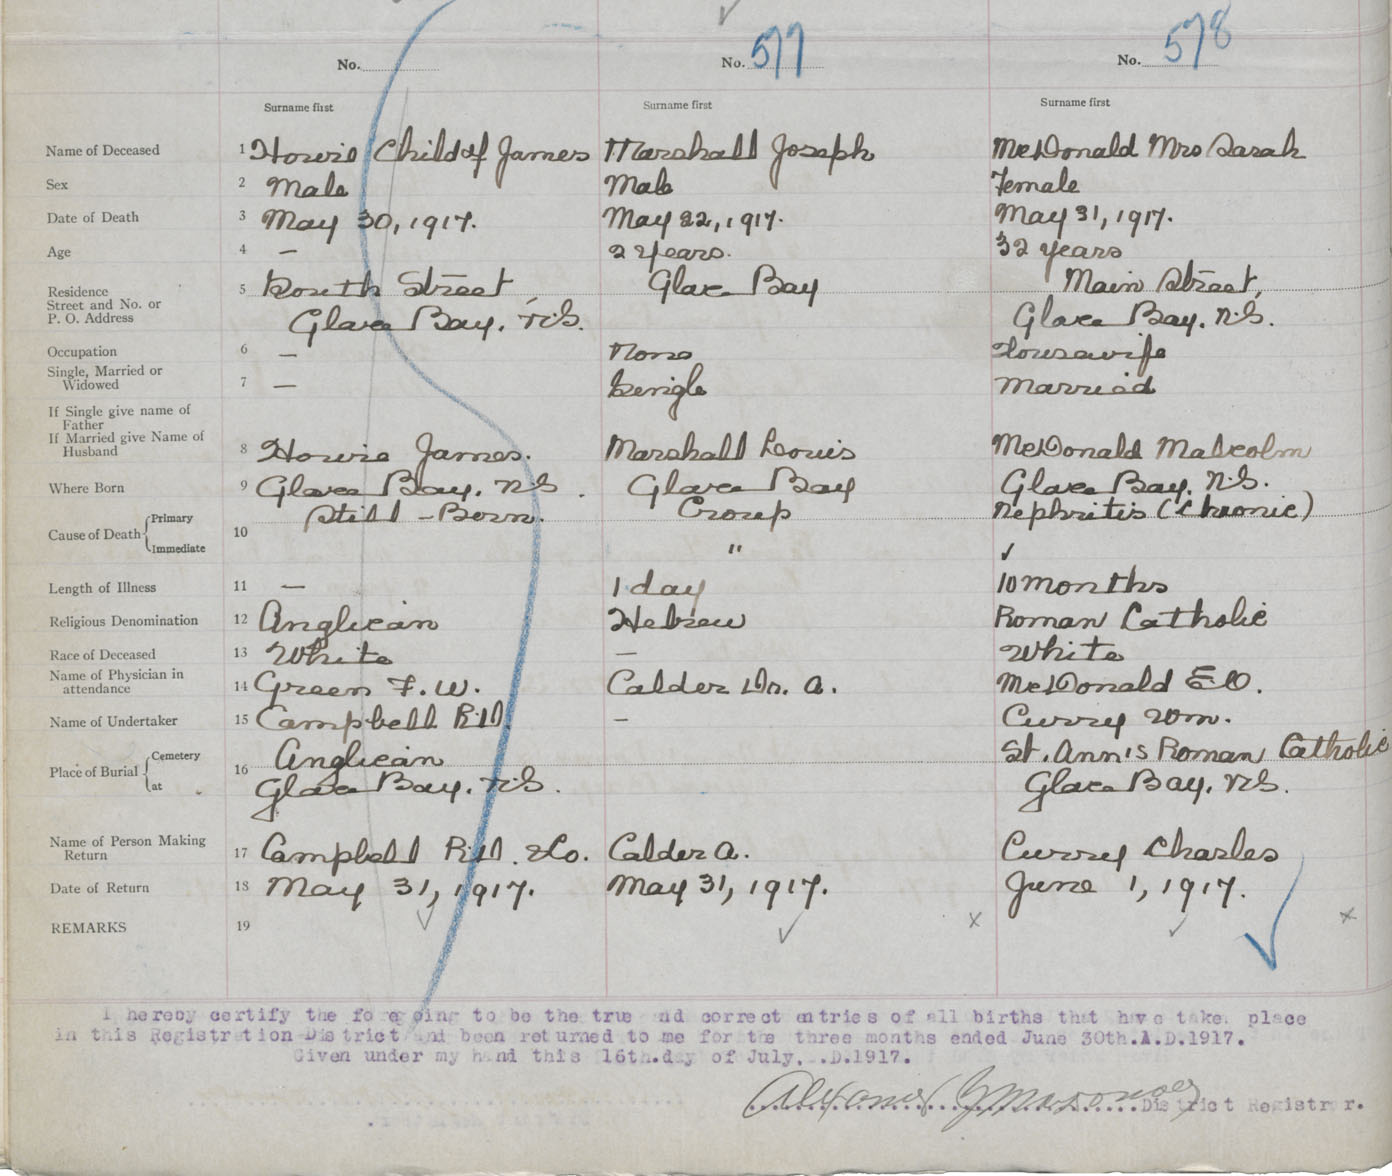 No. No. 577 No. 578
Surname first Surname first Surname first
Name of Deceased 1 Howie Child of James Marshall Joseph McDonald Mrs Sarah
Sex 2 Male Male Female
Date of Death 3 May 30, 1917. May 22, 1917. May 31, 1917.
Age 4 — 2 years. 32 years
Residence
Street and No. or
P. O. Address
5 South Street Glace Bay Main Street,
Glace Bay, N.S. Glace Bay, N.S.
Occupation 6 — None Housewife
Single, Married or
Widowed
7 — Single Married
If Single give name of
Father
If Married give Name of
Husband
8 Howie James. Marshall Louis McDonald Malcolm
Where Born 9 Glace Bay, N.S. Glace Bay Glace Bay, N.S.
Cause of Death Primary
Immediate
10 Still-Born. Croup Nephritis (Chronic)
" ✓
Length of Illness 11 — 1 day 10 months
Religious Denomination 12 Anglican Hebrew Roman Catholic
Race of Deceased 13 White — White
Name of Physician in
attendance
14 Green F. W. Calder Dr. A. McDonald E.O.
Name of Undertaker 15 Campbell — Curry Wm.
Place of Burial Cemetery
at
16 Anglican St. Ann's Roman Catholic
Glace Bay, N.S. Glace Bay, N.S.
Name of Person Making
Return
17 Campbell & Co. Calder A. Curry Charles
Date of Return 18 May 31, 1917. May 31, 1917. June 1, 1917.
REMARKS 19
I hereby certify the foregoing to be the true and correct entries of all births that have taken place
in this Registration District and been returned to me for the three months ended June 30th.A.D.1917.
Given under my hand this 16th.day of July, A.D.1917.
District Registrar.